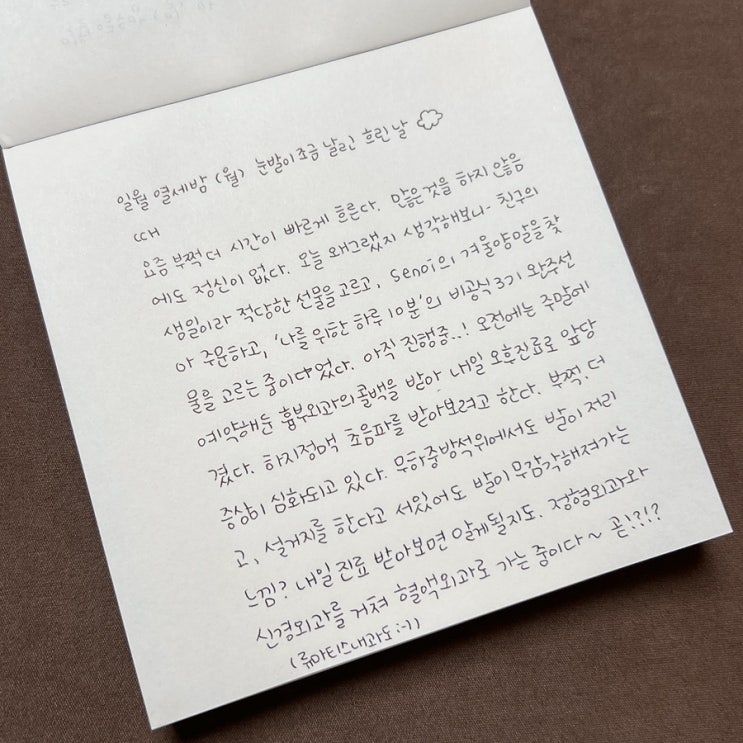 일월 열세밤 (월) 눈발이 조금 날리던 흐린 날
CCH
요즘 부쩍 더 시간이 빠르게 흐른다. 많은것을 하지 않음
에도 정신이 없다. 오늘 왜그랬지 생각해보니- 친구의
생일이라 적당한 선물을 고르고, senoi의 겨울양말을 찾
아 주문하고, '나를 위한 하루 10분'의 비공식 3기 완주선
물을 고르는 중이다었다. 아직 진행중..! 오전에는 주말에
예약해둔 흉부외과의 콜백을 받아 내일 오후진료로 앞당
겼다. 하지정맥 초음파를 받아보려고 한다. 부쩍.더
증상이 심화되고 있다. 무하중방석위에서도 발이 저리
고, 설거지를 한다고 서있어도 발이 무감각해져가는
느낌? 내일 진료 받아보면 알게될지도. 정형외과와
신경외과를 거쳐 혈액외과로 가는 중이다~ 곧!?!?
(류마티스내과도;-1)